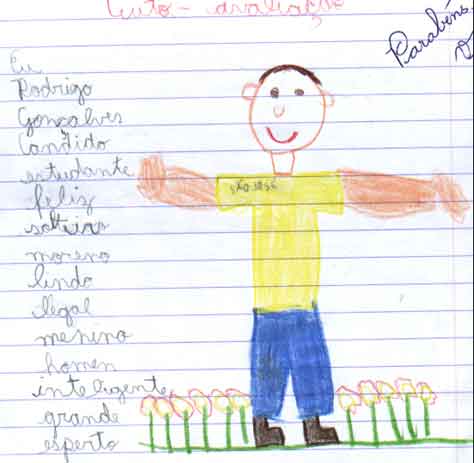 Auto-avaliação
Parabéns
Eu
Rodrigo
Gonçalves
Candido
estudante
feliz
solteiro
moreno
lindo
legal
menino
homen
inteligente
grande
esperto
SÃO JOSÉ